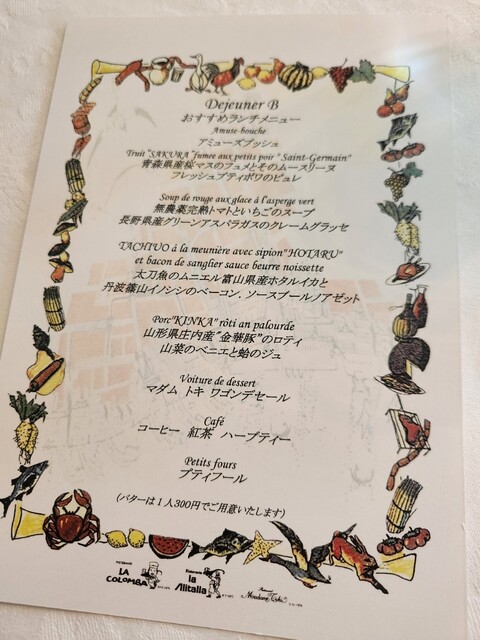 Dejeuner B
おすすめランチメニュー
Amuse-bouche
アミューズブッシュ
Truit "SAKURA" fumee aux petits poir " Saint-Germain"
青森県産桜マスのフュメとそのムースリーヌ
フレッシュプティポワのピュレ
Soup de rouge aux glace à l'asperge vert
無農薬完熟トマトといちごのスープ
長野県産グリーンアスパラガスのクレームグラッセ
TACHIVO á la meunière avec sipion"HOTARU"
et bacon de sanglier sauce beurre noissette
太刀魚のムニエル富山県産ホタルイカと
丹波篠山イノシシのベーコン、ソースブールノアゼット
Porc"KINKA" rôti an palourde
山形県庄内産"金華豚"のロティ
山菜のベニエと蛤のジュ
Voiture de dessert
マダム トキ ワゴンデセール
Café
コーヒー 紅茶 ハーブティー
Petits fours
プティフール
(バターは1人300円でご用意いたします)
LA COLOMBA
la Alitalia
Madame Toki